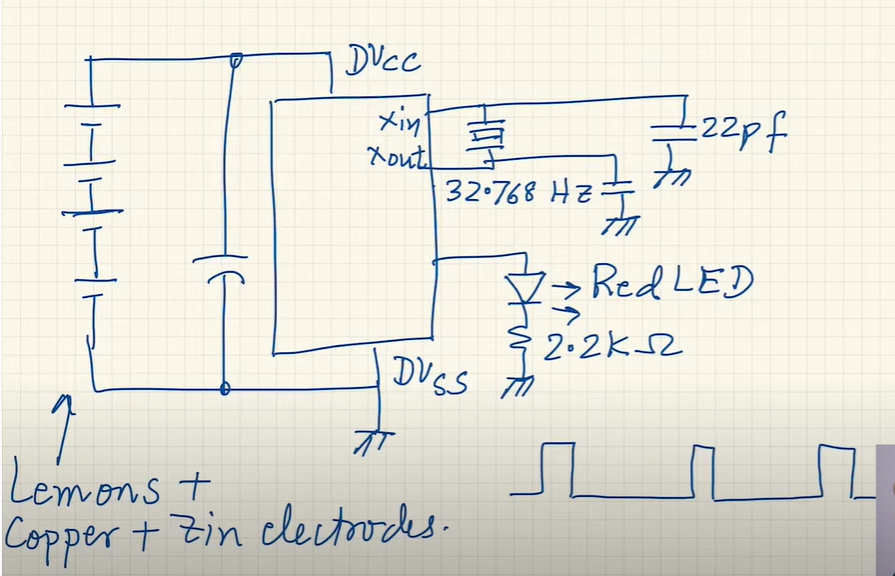 DVCC
Xin
Xout
22pf
32.768 HZ
Red LED
2.2KΩ
DVSS
Lemons +
Copper + Zin electrodes.